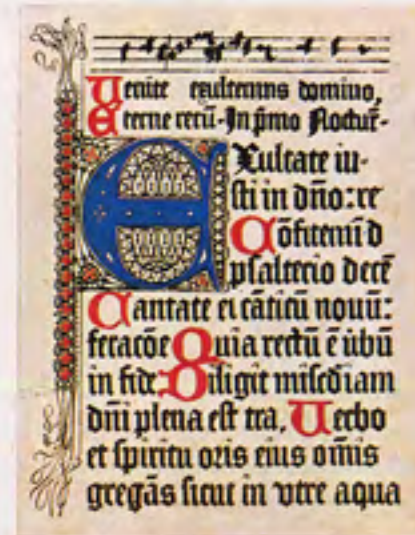 Venite exultemus domino,
Eterne recū. In p̄mo Noctur-
EXultate iu-
sti in dño: re
Cōfitemī d
psalterio decē
Cantate ei cāticū nouū:
feracōe Quia rectū ē ūbū
in fide. Diligit misc̄diam
dñi plena est tra. Verbo
et spiritu oris eius om̄is
gregās sicut in vtre aqua